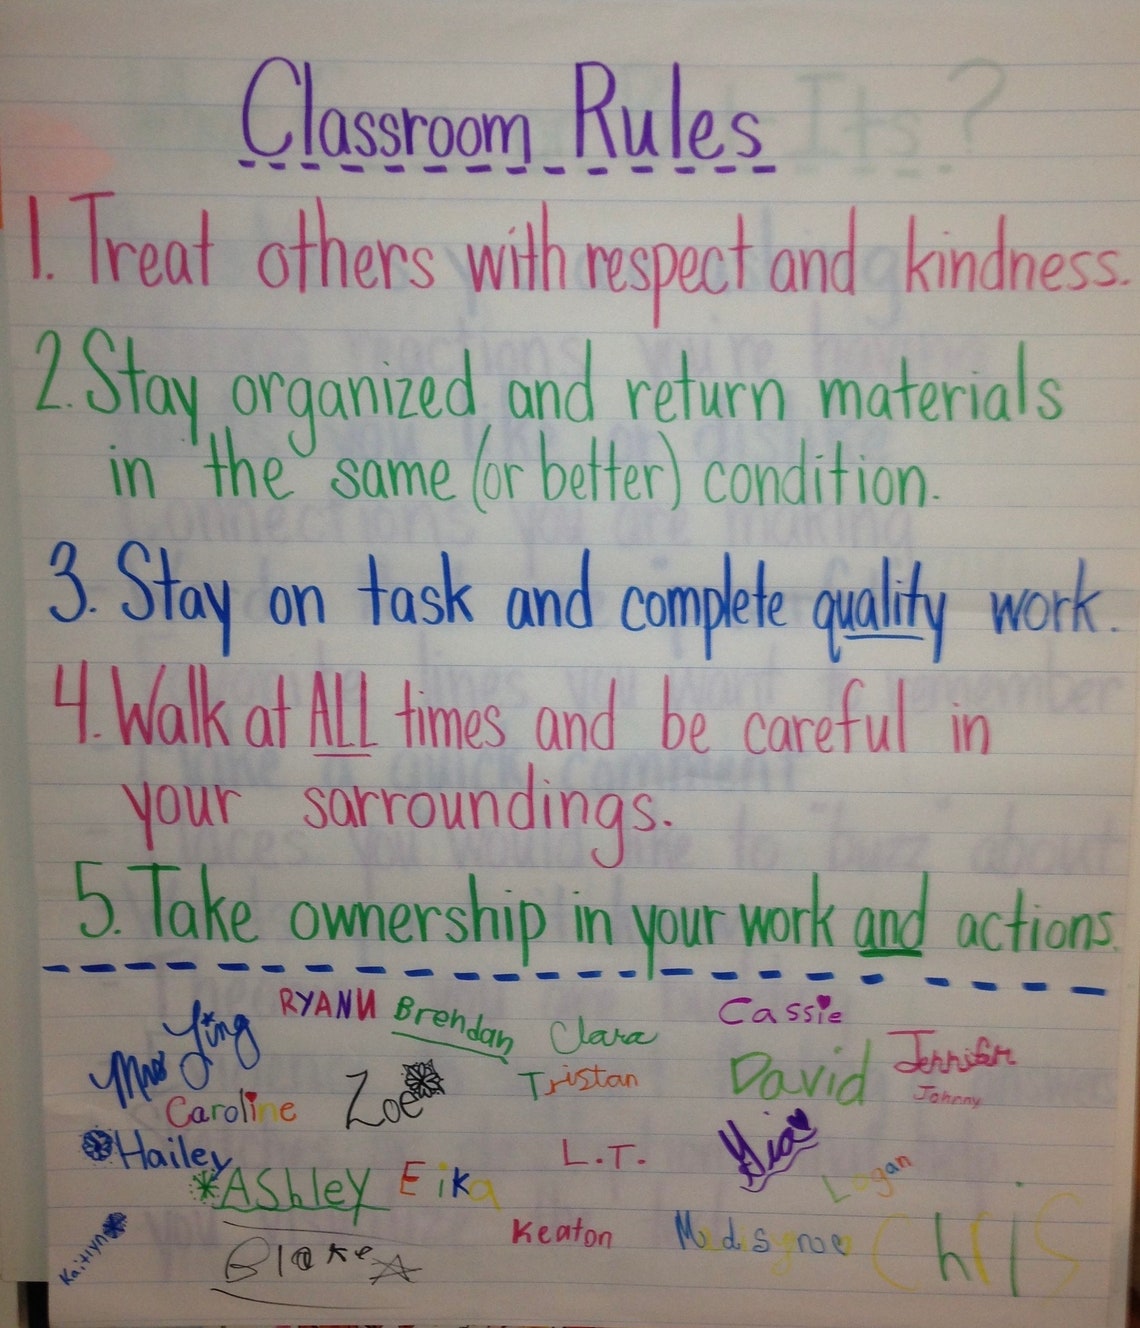 Classroom Rules
1. Treat others with respect and kindness.
2. Stay organized and return materials
in the same (or better) condition.
3. Stay on task and complete quality work.
4. Walk at ALL times and be careful in
your sarroundings.
5. Take ownership in your work and actions.
RYANN Brendan Clara Cassie
Mrs Jennifer
Caroline Zoe Tristan David Johnny
Hailey L.T. Gia Logan
ASHLEY Eika
Kaitlyn Blake Keaton Chris